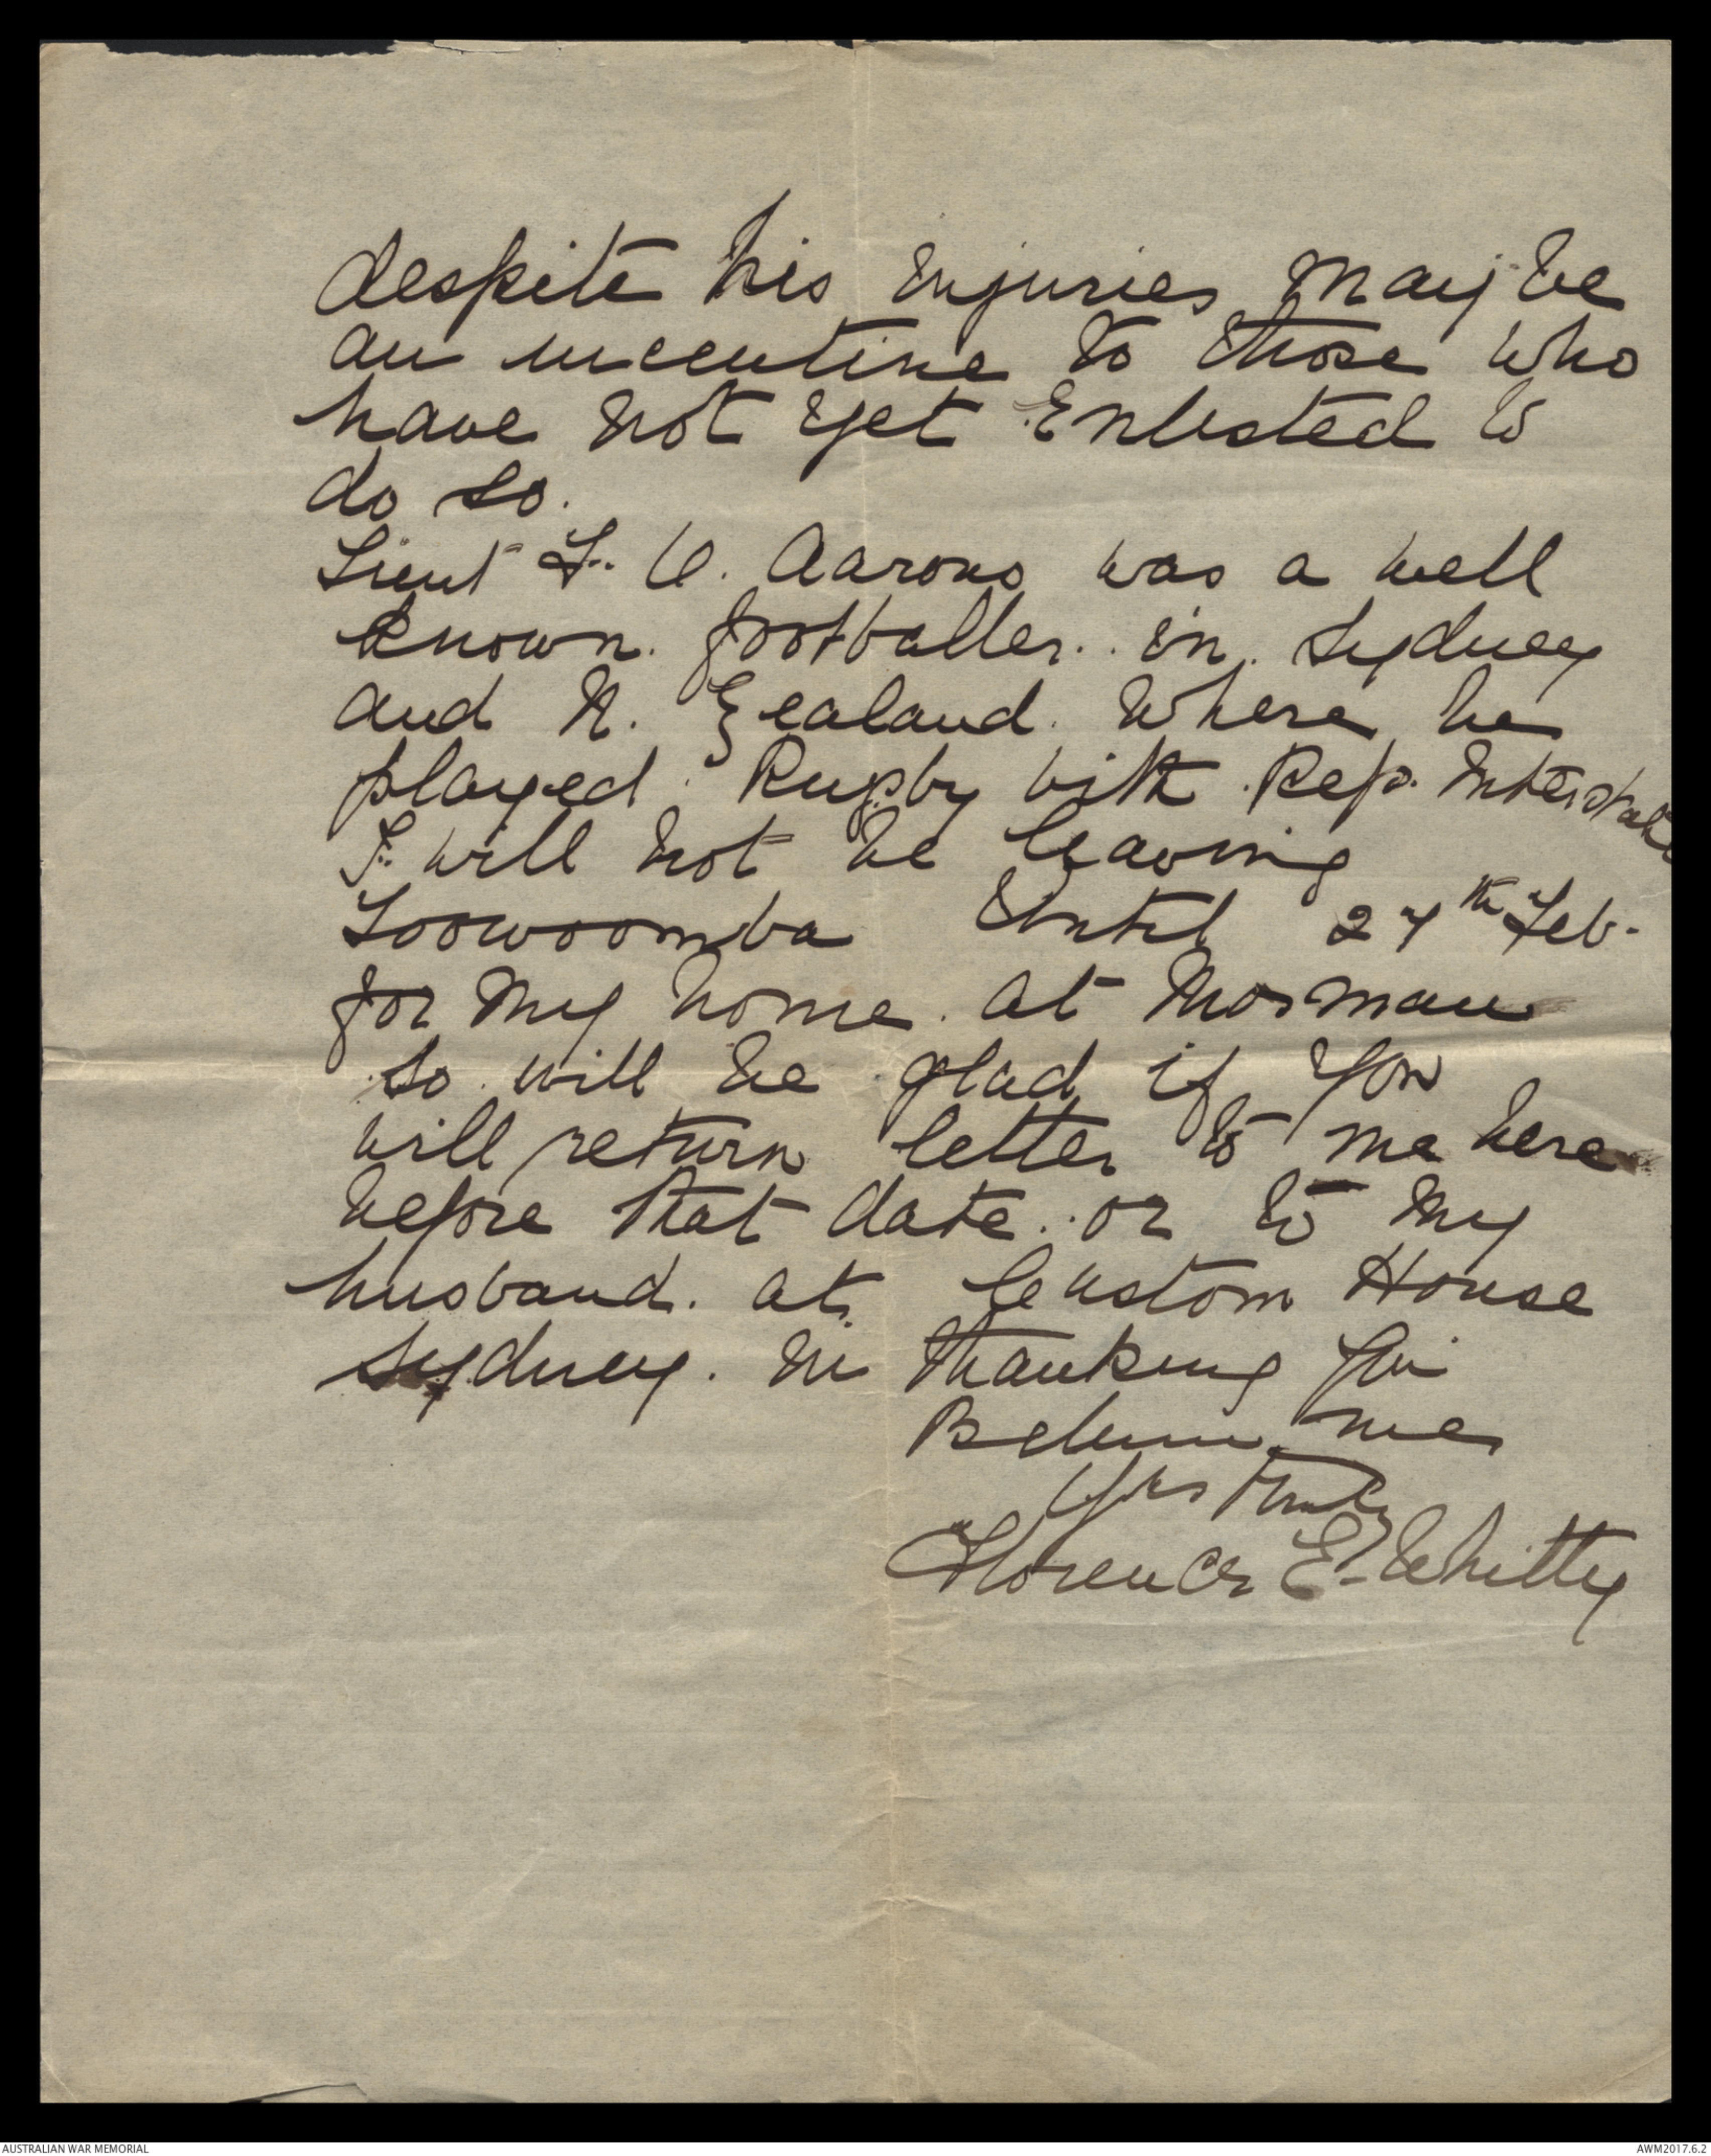 despite his injuries may be
an incentive to those who
have not yet Enlisted to
do so.
Lieut F. V. Aarons was a well
known. footballer.. in. Sydney
and N. Zealand. Where he
played. Rugby with Rep. Interstate
I will not be leaving
Toowoomba Until 27th Feb.
for my home. at Mosman
so will be glad if you
will return letter to me here
before that date.. or to my
husband. at. Custom House
Sydney. In thanking you
Believe me
Yrs truly
Florence E. Whitty
AUSTRALIAN WAR MEMORIAL
AWM2017.6.2